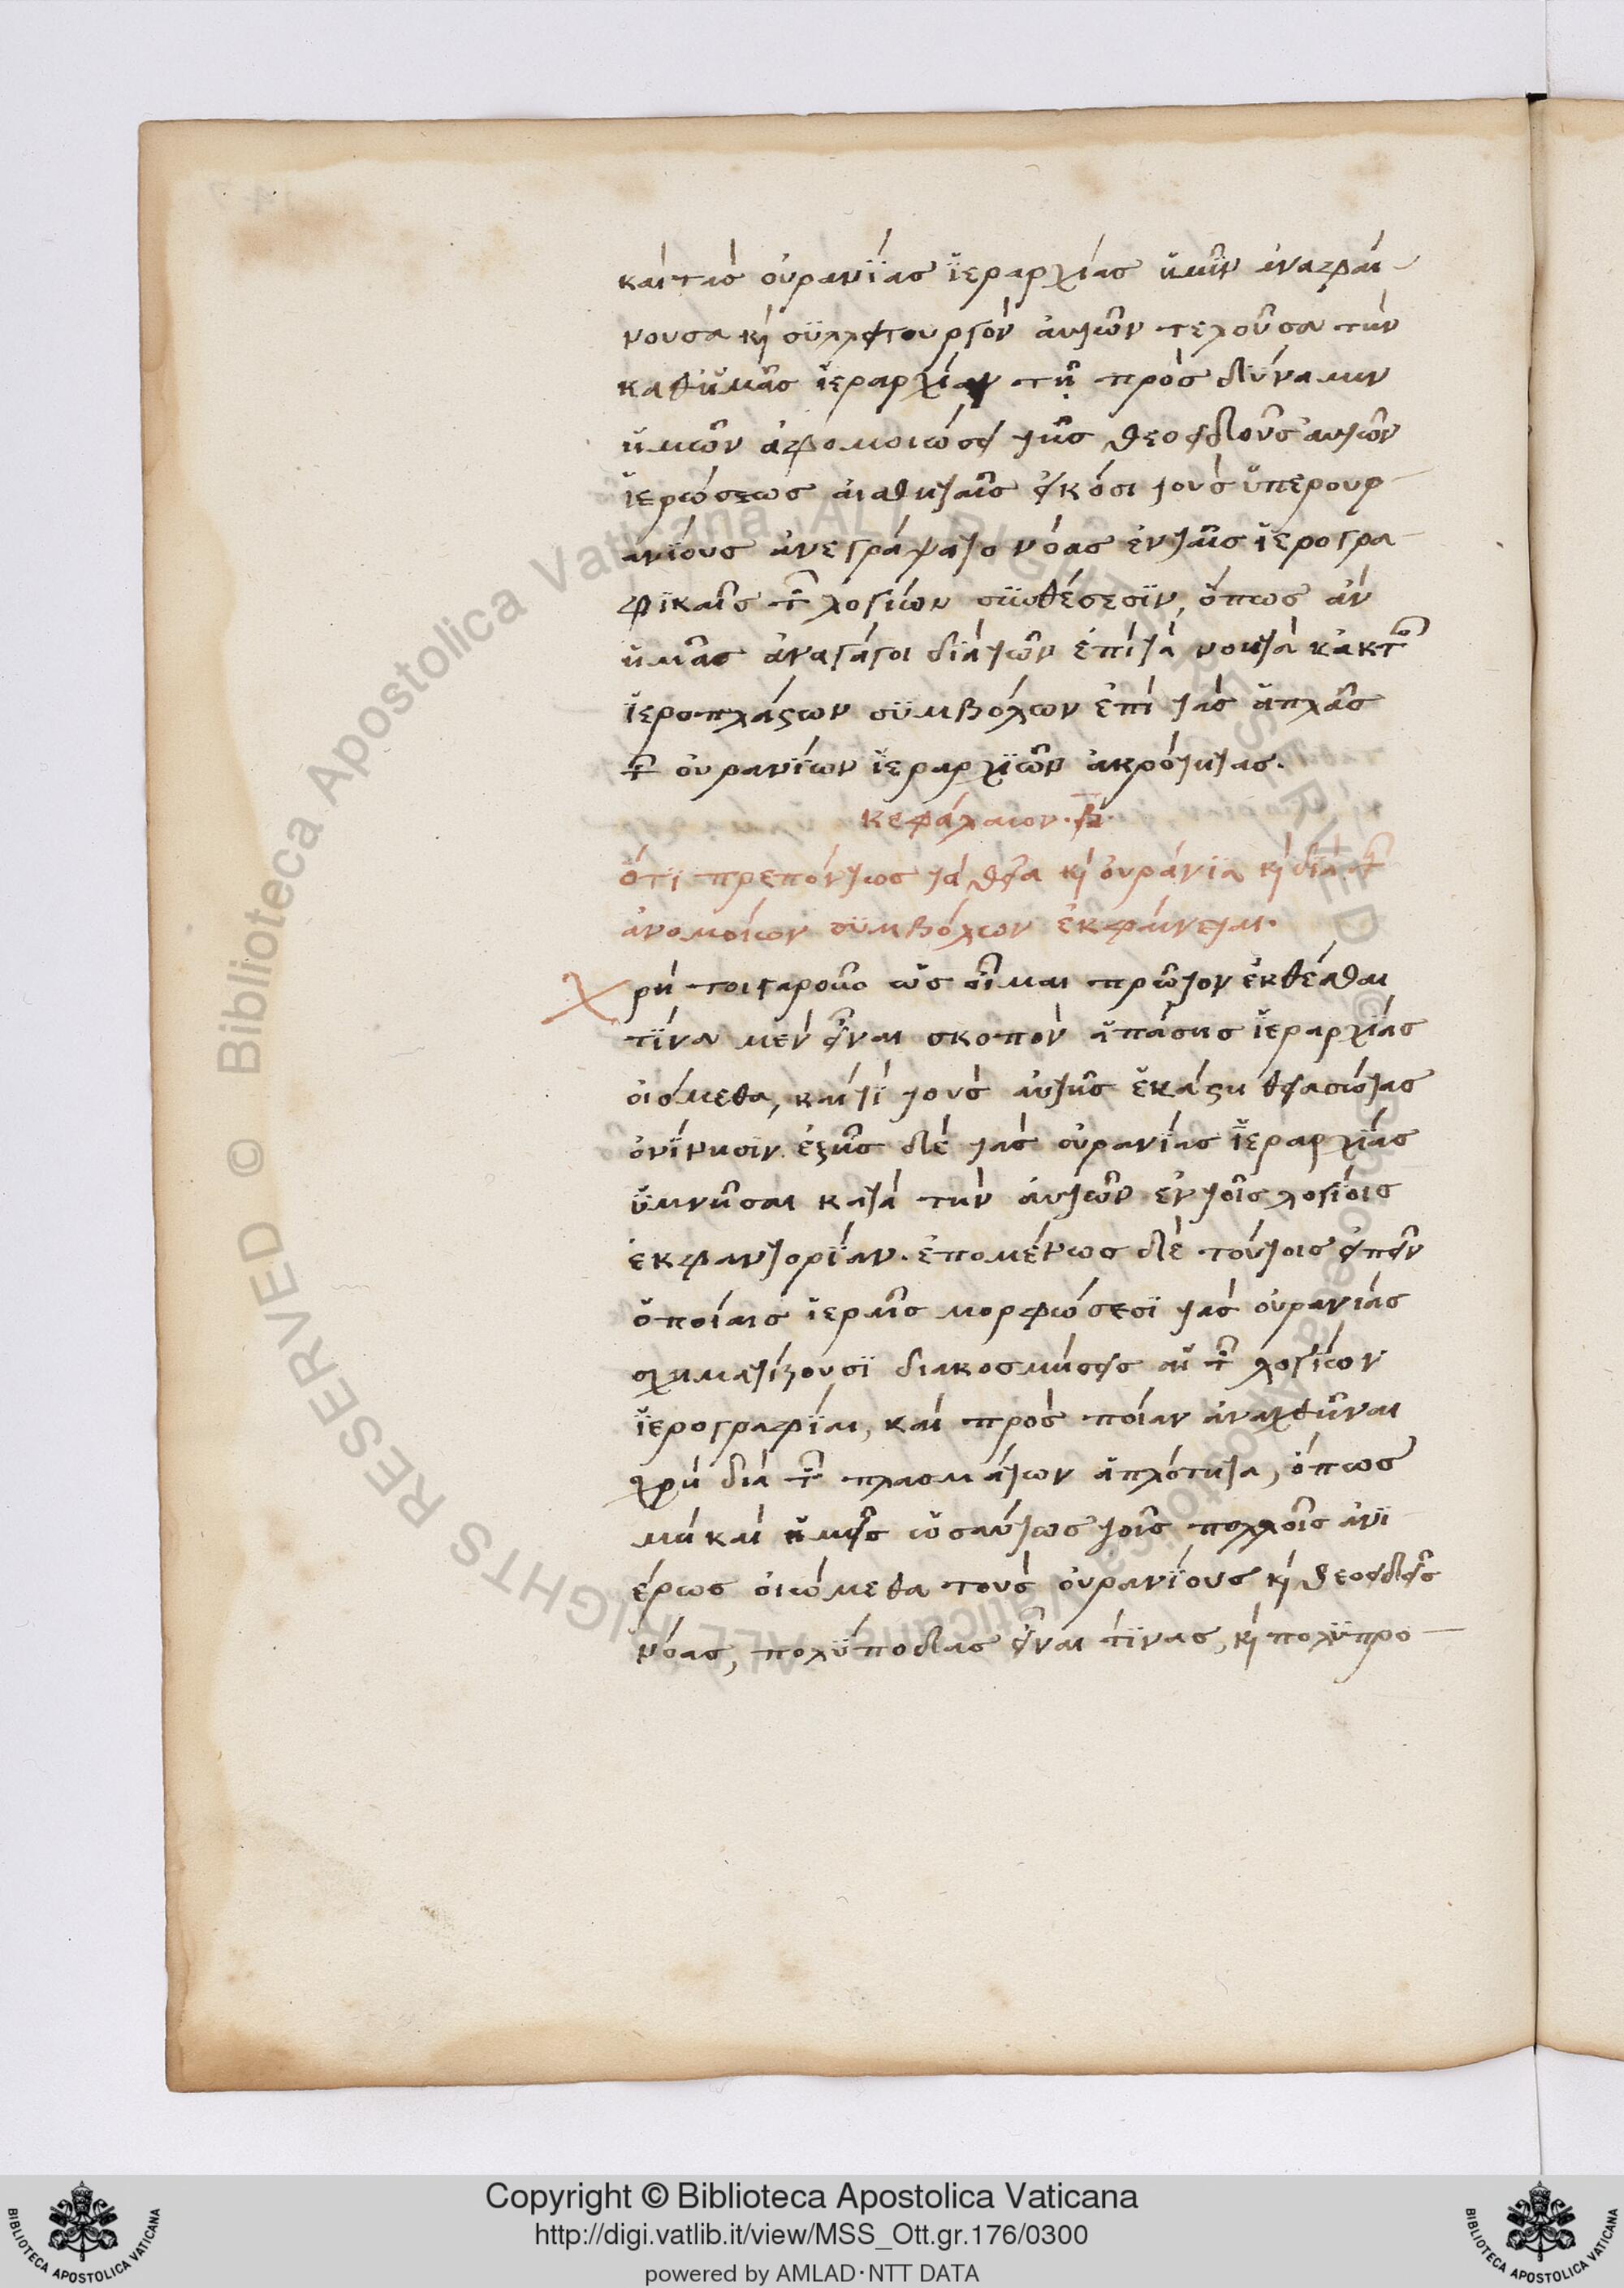 καὶ τὰς οὐρανΐας ἱεραρχίας ἡμῖν ἀναφαί-
νουσα κὶ συλλειτουργὸν αὐτῶν τελοῦσα τὴν
καθ' ἡμᾶς ἱεραρχίαν τῇ πρὸς δύναμιν
ἡμῶν ἀφομοιώσει τῆς θεοειδοῦς αὐτῶν
ἱερώσεως αἰσθηταῖς εἰκόσι τοὺς ὑπερουρ-
ανΐους ἀνεγράψατο νόας ἐν ταῖς ἱερογρα-
φικαῖς τῶν λογίων συνθέσεσϊν, ὅπως ἂν
ἡμᾶς ἀναγάγοι διὰ τῶν ἐπὶ τὰ νοητὰ κἀκ τῶν
ἱεροπλάστων συμβόλων ἐπὶ τὰς ἁπλᾶς
τῶν οὐρανΐων ἱεραρχιῶν ἀκρότητας.
κεφάλαιον. β̅.
ὅτι πρεπόντως τὰ θεῖα κὶ οὐράνϊα κὶ διὰ τῶν
ἀνομοίων συμβόλων ἐκφαίνεται.
Χρὴ τοιγαροῦν ὡς οἶμαι πρῶτον ἐκθέσθαι
τίνα μὲν εἶναι σκοπὸν ἁπάσης ἱεραρχίας
οἰόμεθα, καὶ τί τοὺς αὐτῆς ἑκάστη θιασώτας
ὀνίνησϊν. ἑξῆς δὲ τὰς οὐρανΐας ἱεραρχίας
ὑμνῆσαι κατὰ τὴν αὐτῶν ἐν τοῖς λογίοις
ἐκφαντορΐαν. ἑπομένως δὲ τούτοις εἰπεῖν
ὁποίαις ἱεραῖς μορφώσεσϊ τὰς οὐρανίας
σχηματίζουσϊ διακοσμήσεις αἱ τῶν λογίων
ἱερογραφΐαι, καὶ πρὸς ποίαν ἀναχθῆναι
χρὴ διὰ τῶν πλασμάτων ἁπλότητα, ὅπως
μὴ καὶ ἡμεῖς ὡσαύτως τοῖς πολλοῖς ἀνϊ
έρως οἰώμεθα τοὺς οὐρανΐους κὶ θεοειδεῖς
νόας, πολύποδας εἶναι τϊνὰς, κὶ πολυπρο-
Copyright © Biblioteca Apostolica Vaticana
http://digi.vatlib.it/view/MSS_Ott.gr.176/0300
powered by AMLAD·NTT DATA